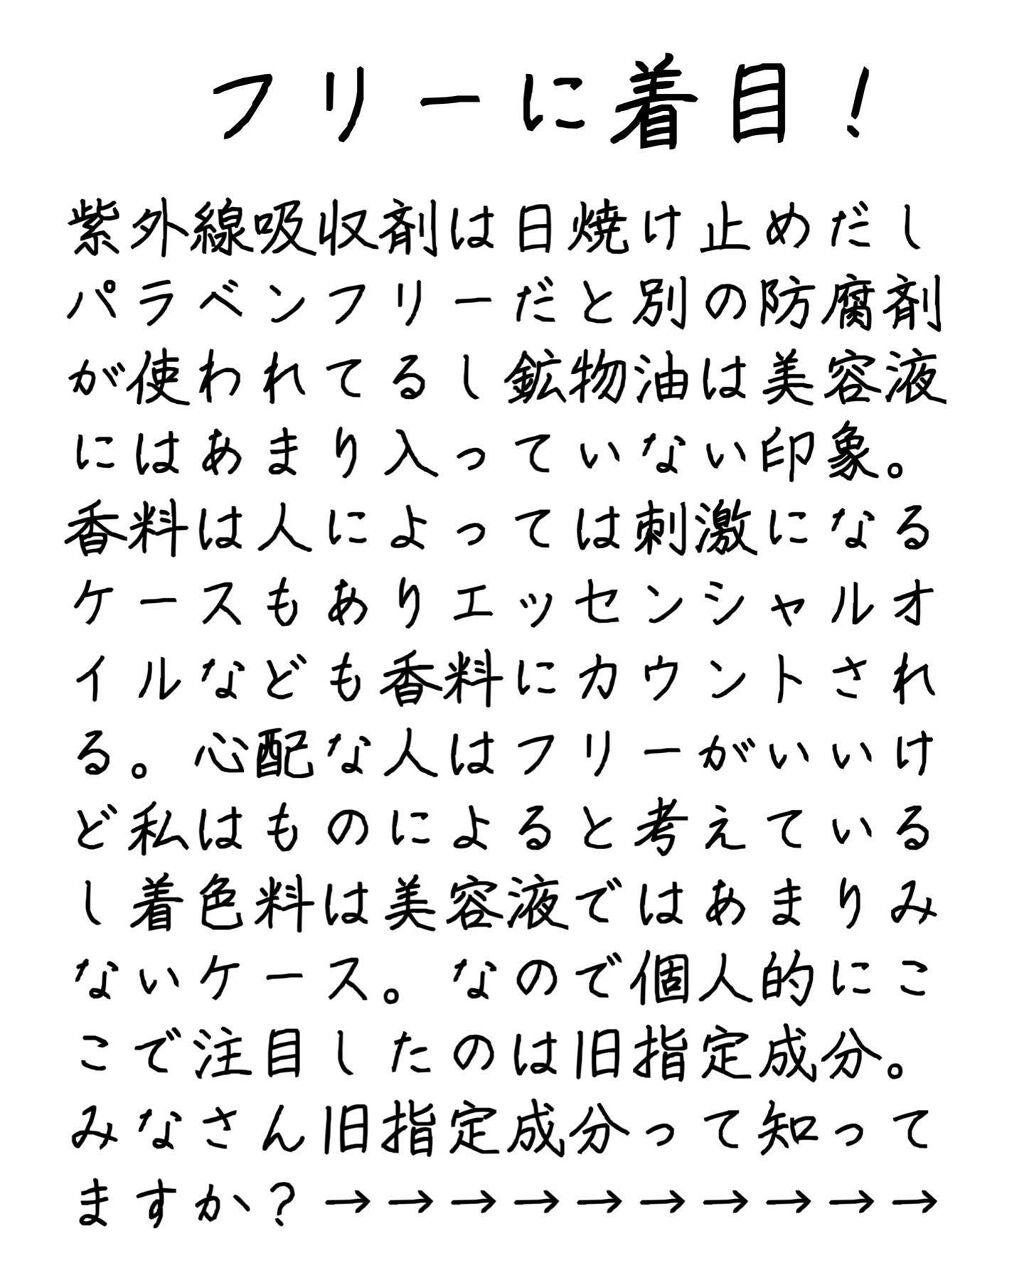 フリーに着目！
紫外線吸収剤は日焼け止めだし
パラベンフリーだと別の防腐剤
が使われてるし鉱物油は美容液
にはあまり入っていない印象。
香料は人によっては刺激になる
ケースもありエッセンシャルオ
イルなども香料にカウントされ
る。心配な人はフリーがいいけ
ど私はものによると考えている
し着色料は美容液ではあまりみ
ないケース。なので個人的にこ
こで注目したのは旧指定成分。
みなさん旧指定成分って知って
ますか？→→→→→→→→→→